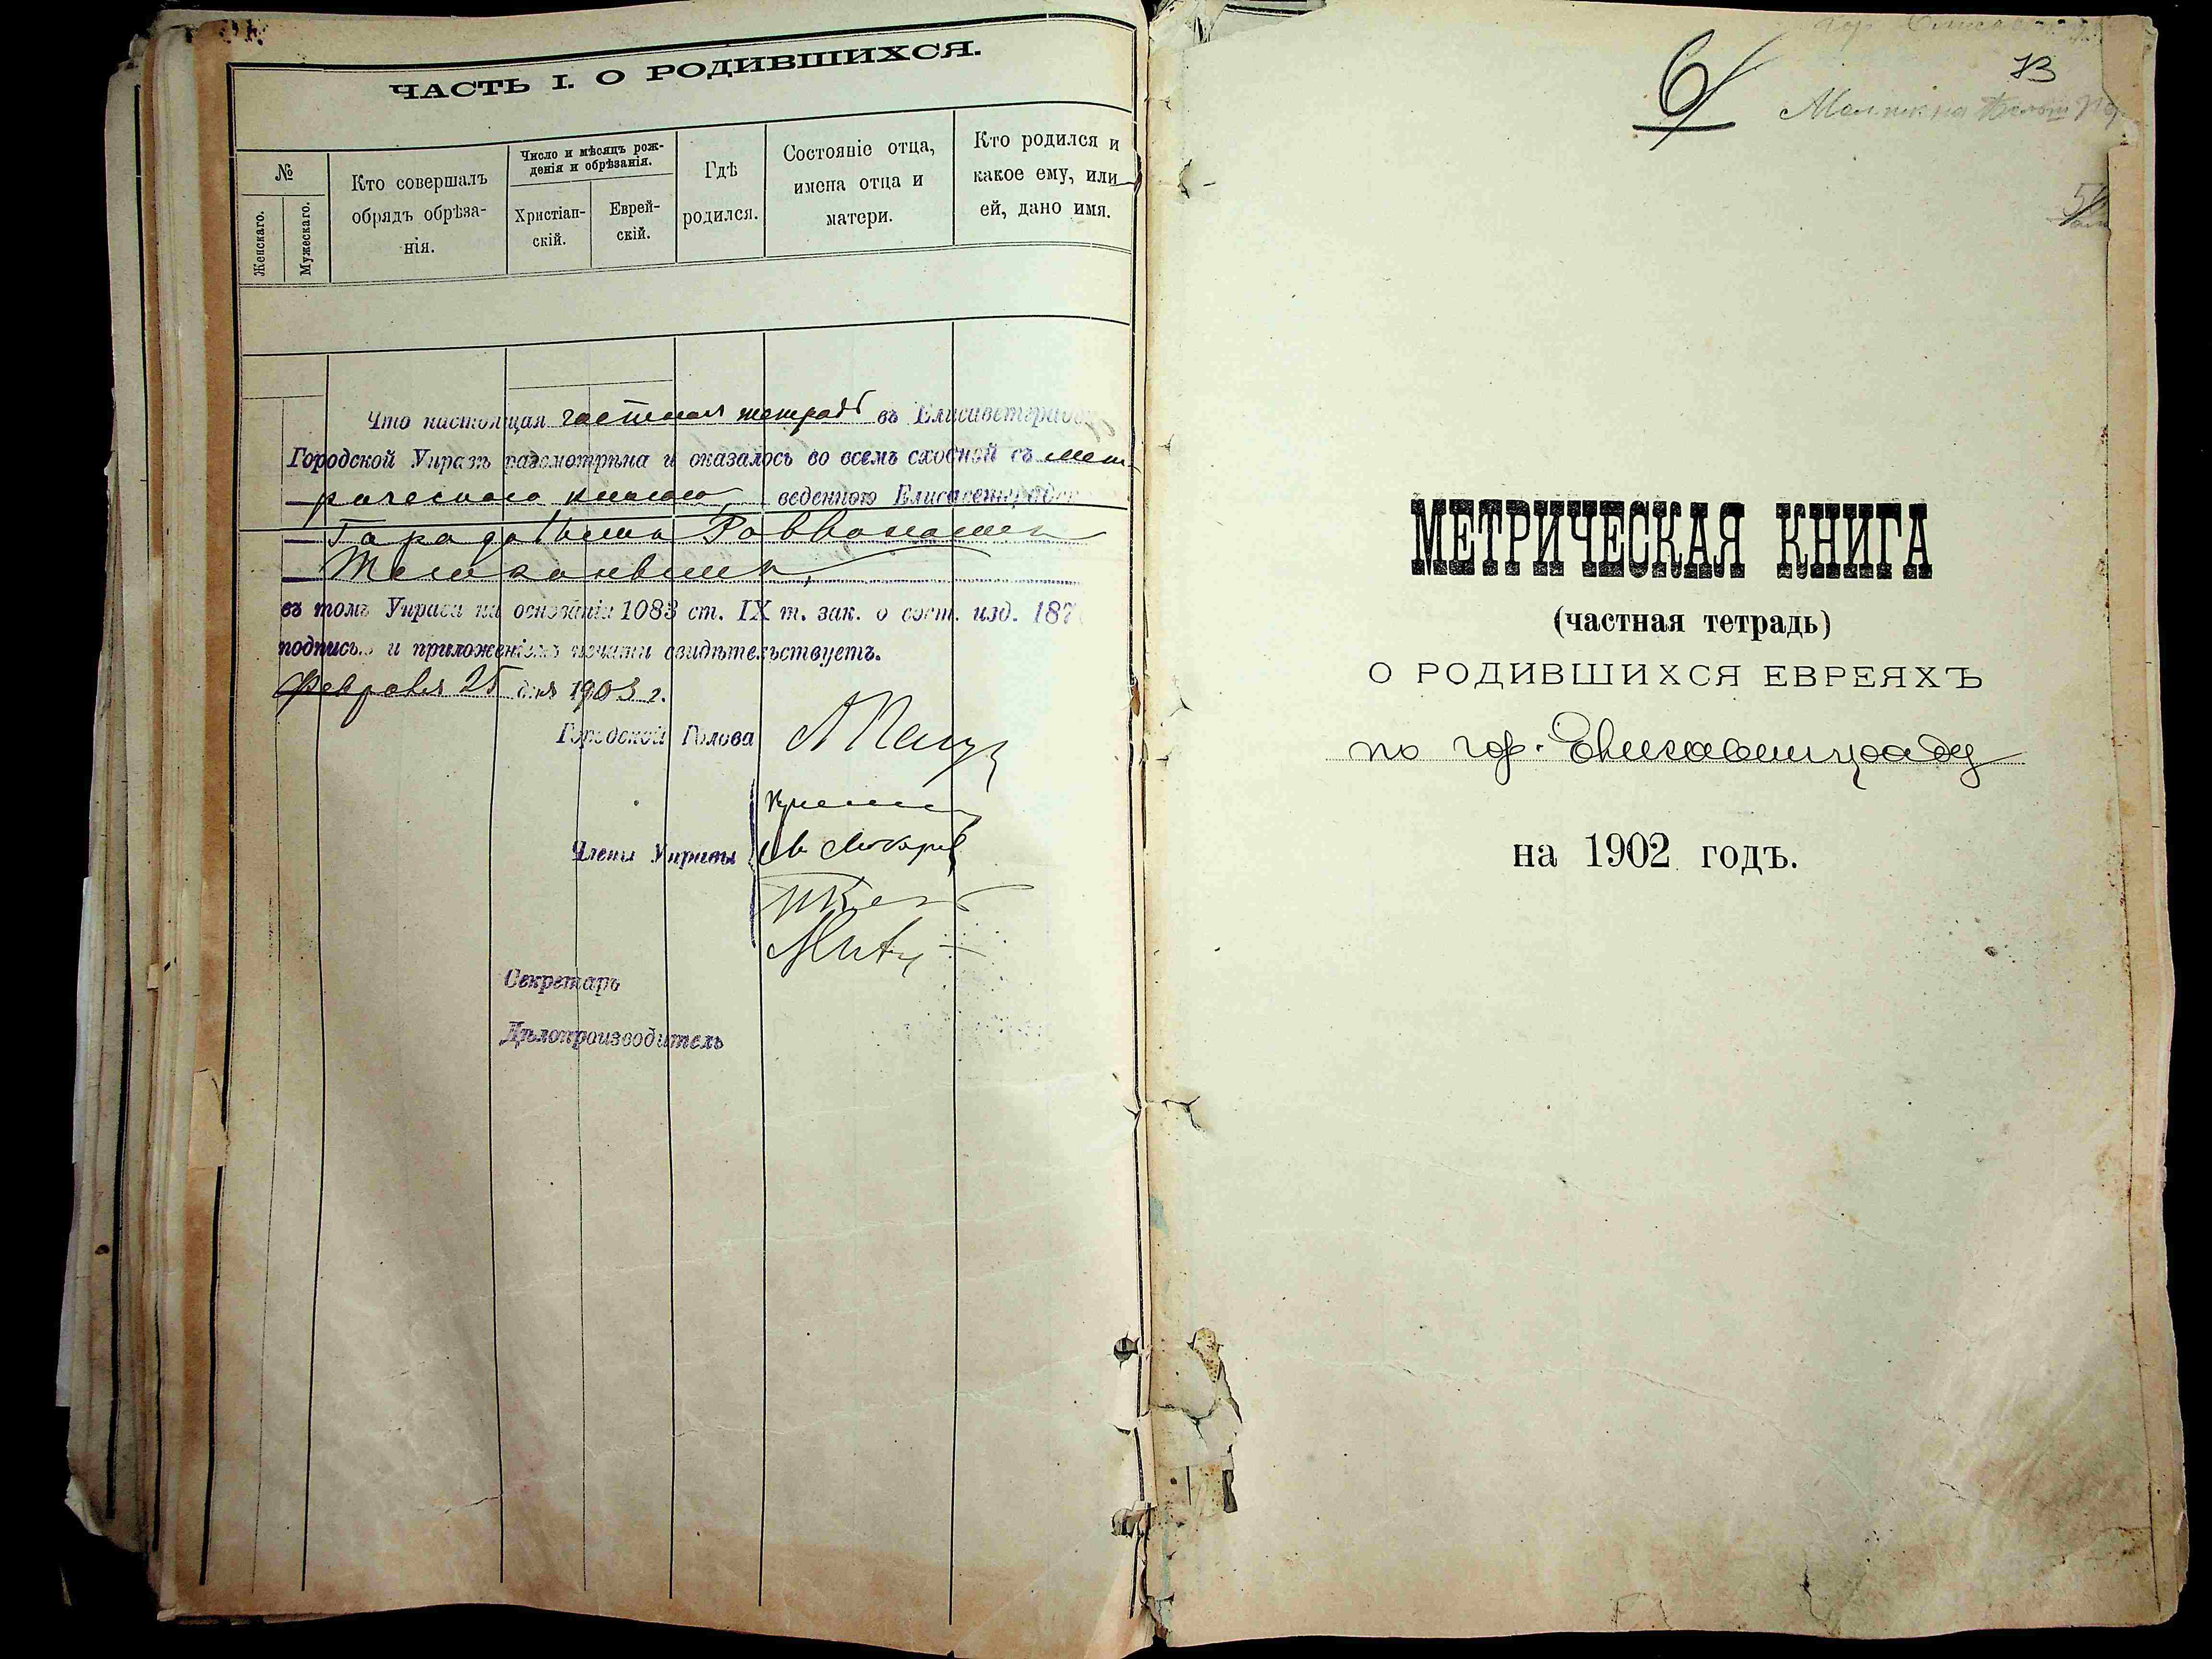 ЧАСТЬ I. О РОДИВШИХСЯ.
№
Женскаго.
Мужескаго.
Кто совершалъ
обрядъ обрѣза-
нія.
Число и мѣсяцъ рож-
денія и обрѣзанія.
Христіан-
скій.
Еврей-
скій.
Гдѣ
родился.
Состояніе отца,
имена отца и
матери.
Кто родился и
какое ему, или
ей, дано имя.
Что настоящая частная тетрадь въ Елисаветград
Городской Управѣ разсмотрѣна и оказалось во всемъ сходной съ мет-
рическою книгою веденною Елисаветградск
Городовымъ Раввиномъ
въ томъ Управа на основаніи 1083 ст. IX т. зак. о сост. изд. 187
подписью и приложеніемъ печати свидѣтельствуетъ.
Февраля 25 дня 1903 г.
Городской Голова
Члены Управы
Секретарь
Дѣлопроизводитель
6
73
МЕТРИЧЕСКАЯ КНИГА
(частная тетрадь)
О РОДИВШИХСЯ ЕВРЕЯХЪ
по гор. Елисаветграду
на 1902 годъ.